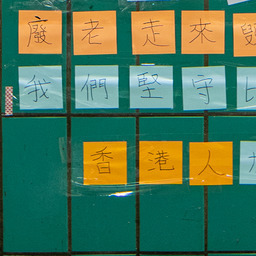 廢老走來
我們堅守
香港人